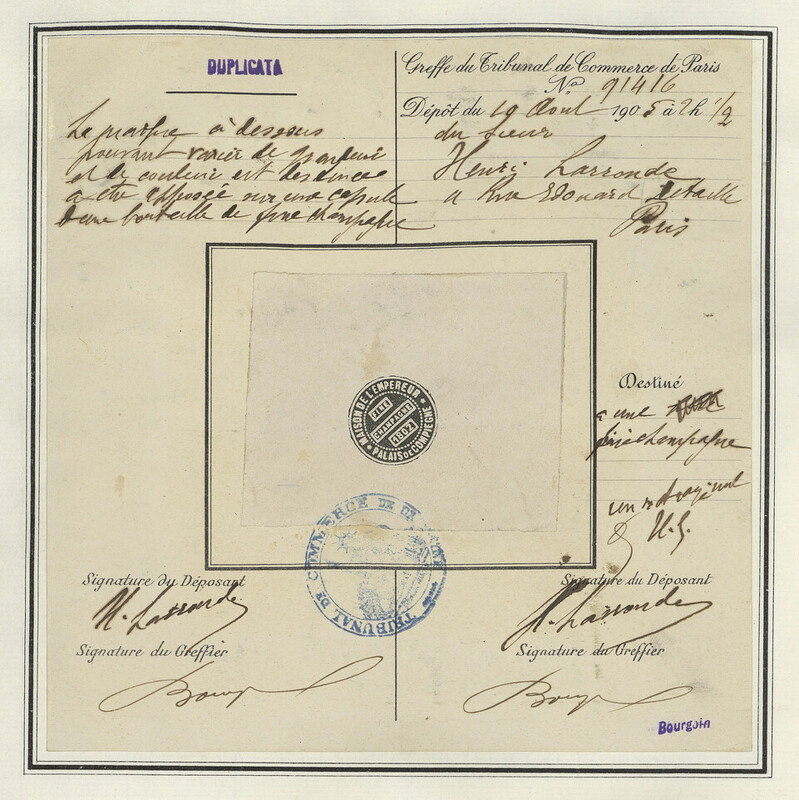 DUPLICATA
La marque ci dessous
pouvant varier de grandeur
et de couleur est destinée
a etre apposée sur une capsule
d'une bouteille de fine champagne
Greffe du Tribunal de Commerce de Paris
No 91416
Dépôt du 19 Aout 1905 à 2h 1/2
du sieur
Henri Lassonde
Rue Edouard Detaille
Paris
MAISON DE L'EMPEREUR
FINE
CHAMPAGNE
1862
PALAIS DE COMPIÈGNE
Destiné
a une
fine champagne
un mot rayé nul
H.L.
TRIBUNAL DE COMMERCE DE
Signature du Déposant
H. Lassonde
Signature du Greffier
Signature du Déposant
H. Lassonde
Signature du Greffier
Bourgoin